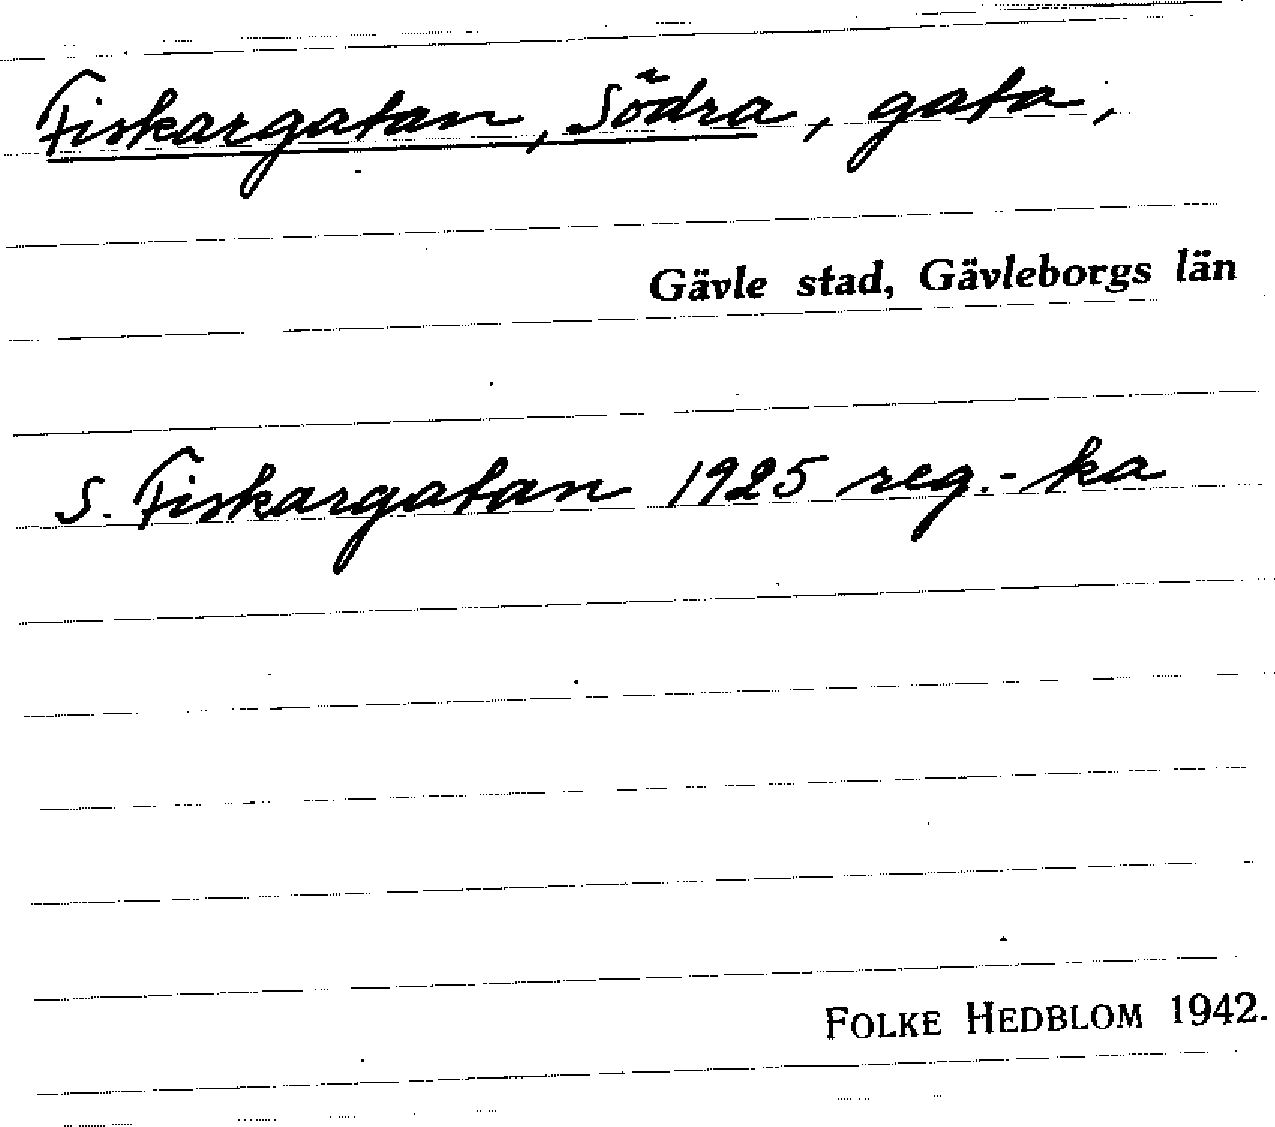 Fiskargatan, Södra, gata,
Gävle stad, Gävleborgs län
S. Fiskargatan 1925 reg.-ka
FOLKE HEDBLOM 1942.